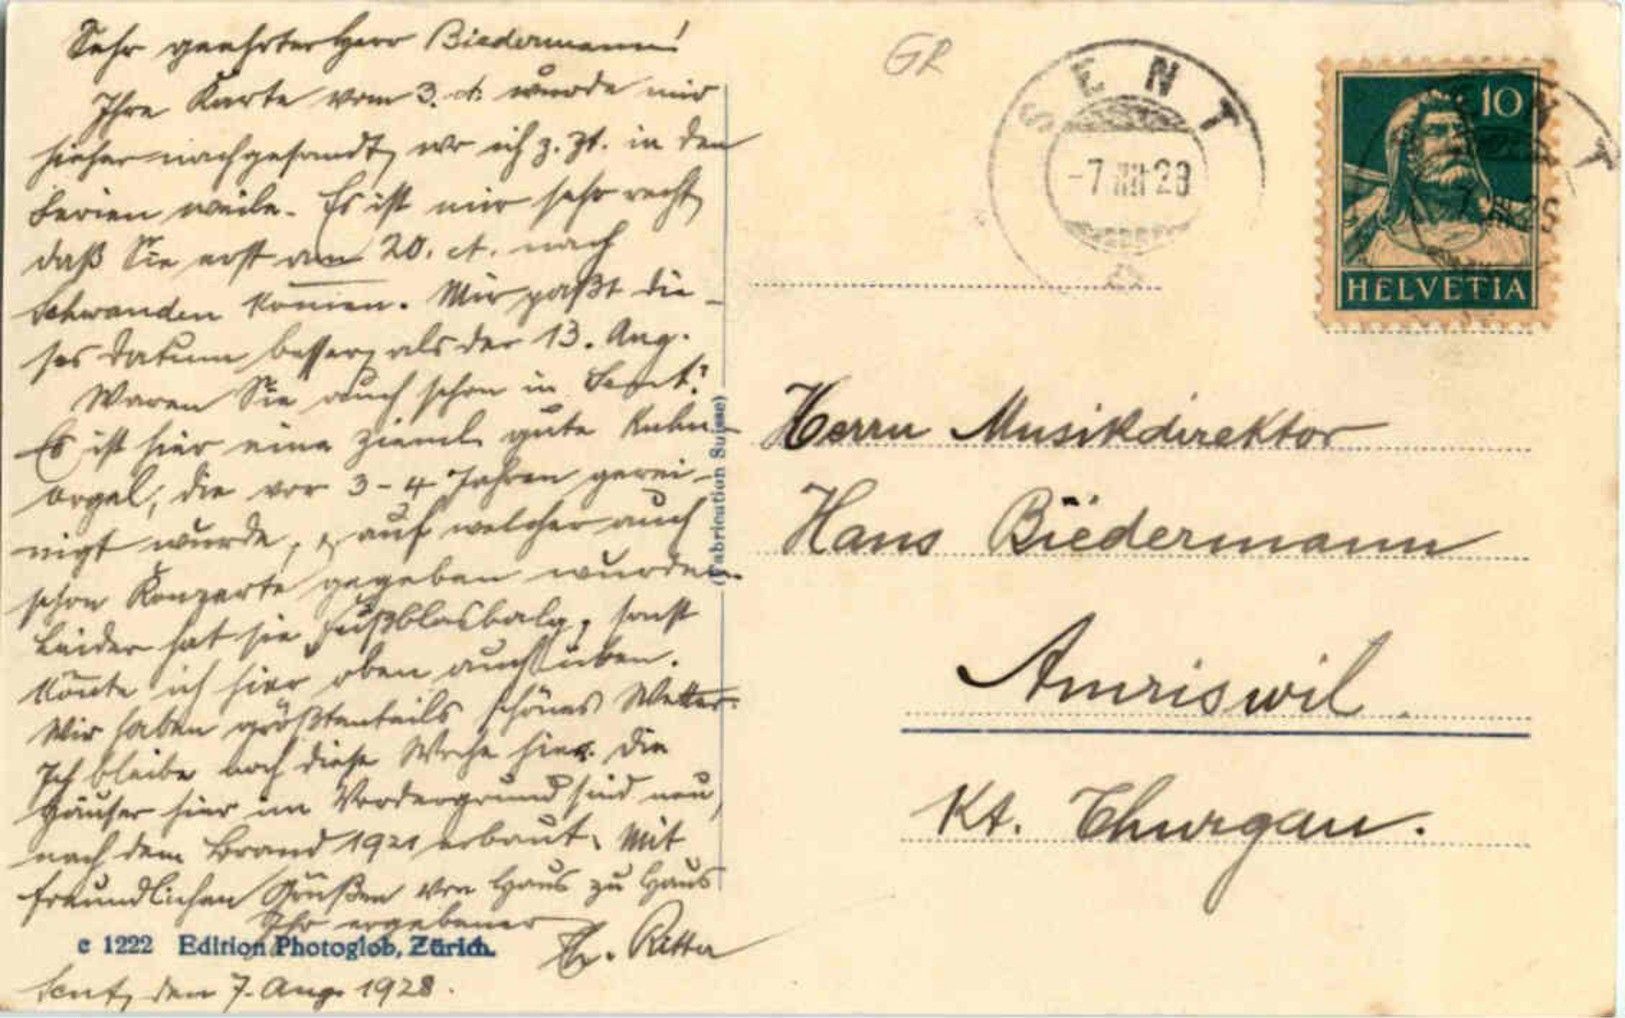 Sehr geehrter Herr Biedermann!
Ihre Karte vom 3. ct. wurde mir
hieher nachgesandt, wo ich z. Zt. in den
Ferien weile. Es ist mir sehr recht,
daß Sie erst am 20. ct. nach
Schwanden kommen. Mir paßt die-
ses Datum besser, als der 13. Aug.
Waren Sie auch schon in Sent?
Es ist hier eine zieml. gute Kuhn-
orgel, die vor 3-4 Jahren gerei-
nigt wurde, & auf welcher auch
schon Konzerte gegeben wurden.
Leider hat sie Fußblasbalg, sonst
könnte ich hier oben auch üben.
Wir haben größtenteils schönes Wetter.
Ich bleibe noch diese Woche hier. Die
Häuser hier im Vordergrund sind neu,
nach dem Brand 1921 erbaut. Mit
freundlichen Grüßen von Haus zu Haus
Ihr ergebener
Ritter
Sent, den 7. Aug. 1928.
c 1222 Edition Photoglob, Zürich.
(Fabrication Suisse)
GR
SENT
-7.VIII.28
10
HELVETIA
Herrn Musikdirektor
Hans Biedermann
Amriswil
Kt. Thurgau.